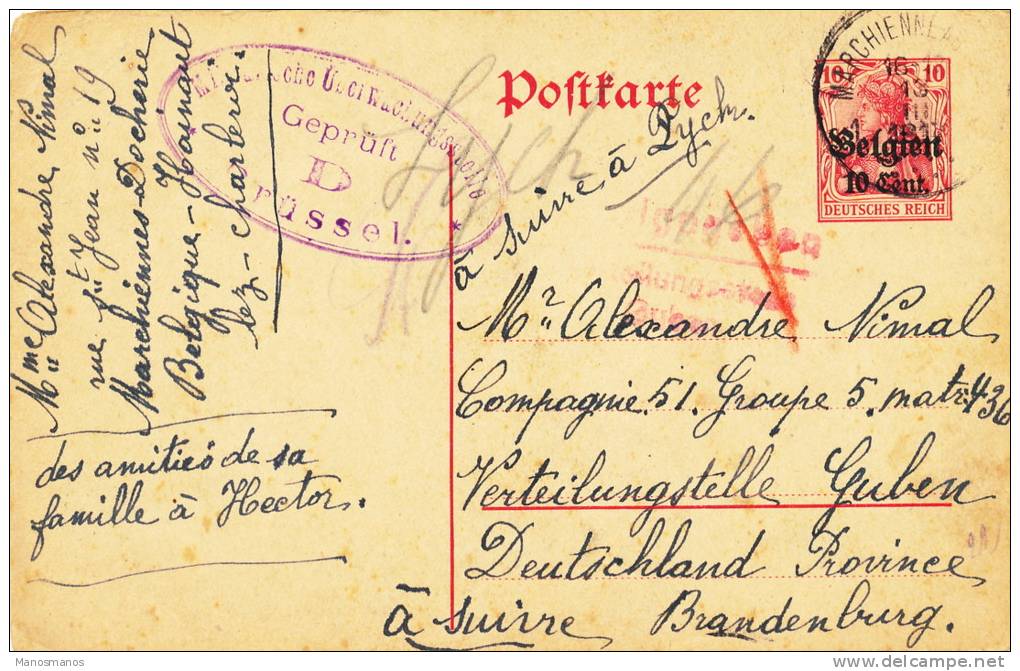 Mme Alexandre Nimal
rue St Jean no 19
Marchiennes-Docherie
Belgique-Hainaut
lez-Charleroi.
des amitiés de sa
famille à Hector.
Geprüft
D
Postkarte
à suivre à Pych.
MARCHIENNE
10 10
Belgien
10 Cent.
DEUTSCHES REICH
Mr Alexandre Nimal
Compagnie. 51. Groupe 5. matr. 436
Verteilungstelle Guben
Deutschland Province
à suivre Brandenburg.
Manosmanos
www.delcampe.net